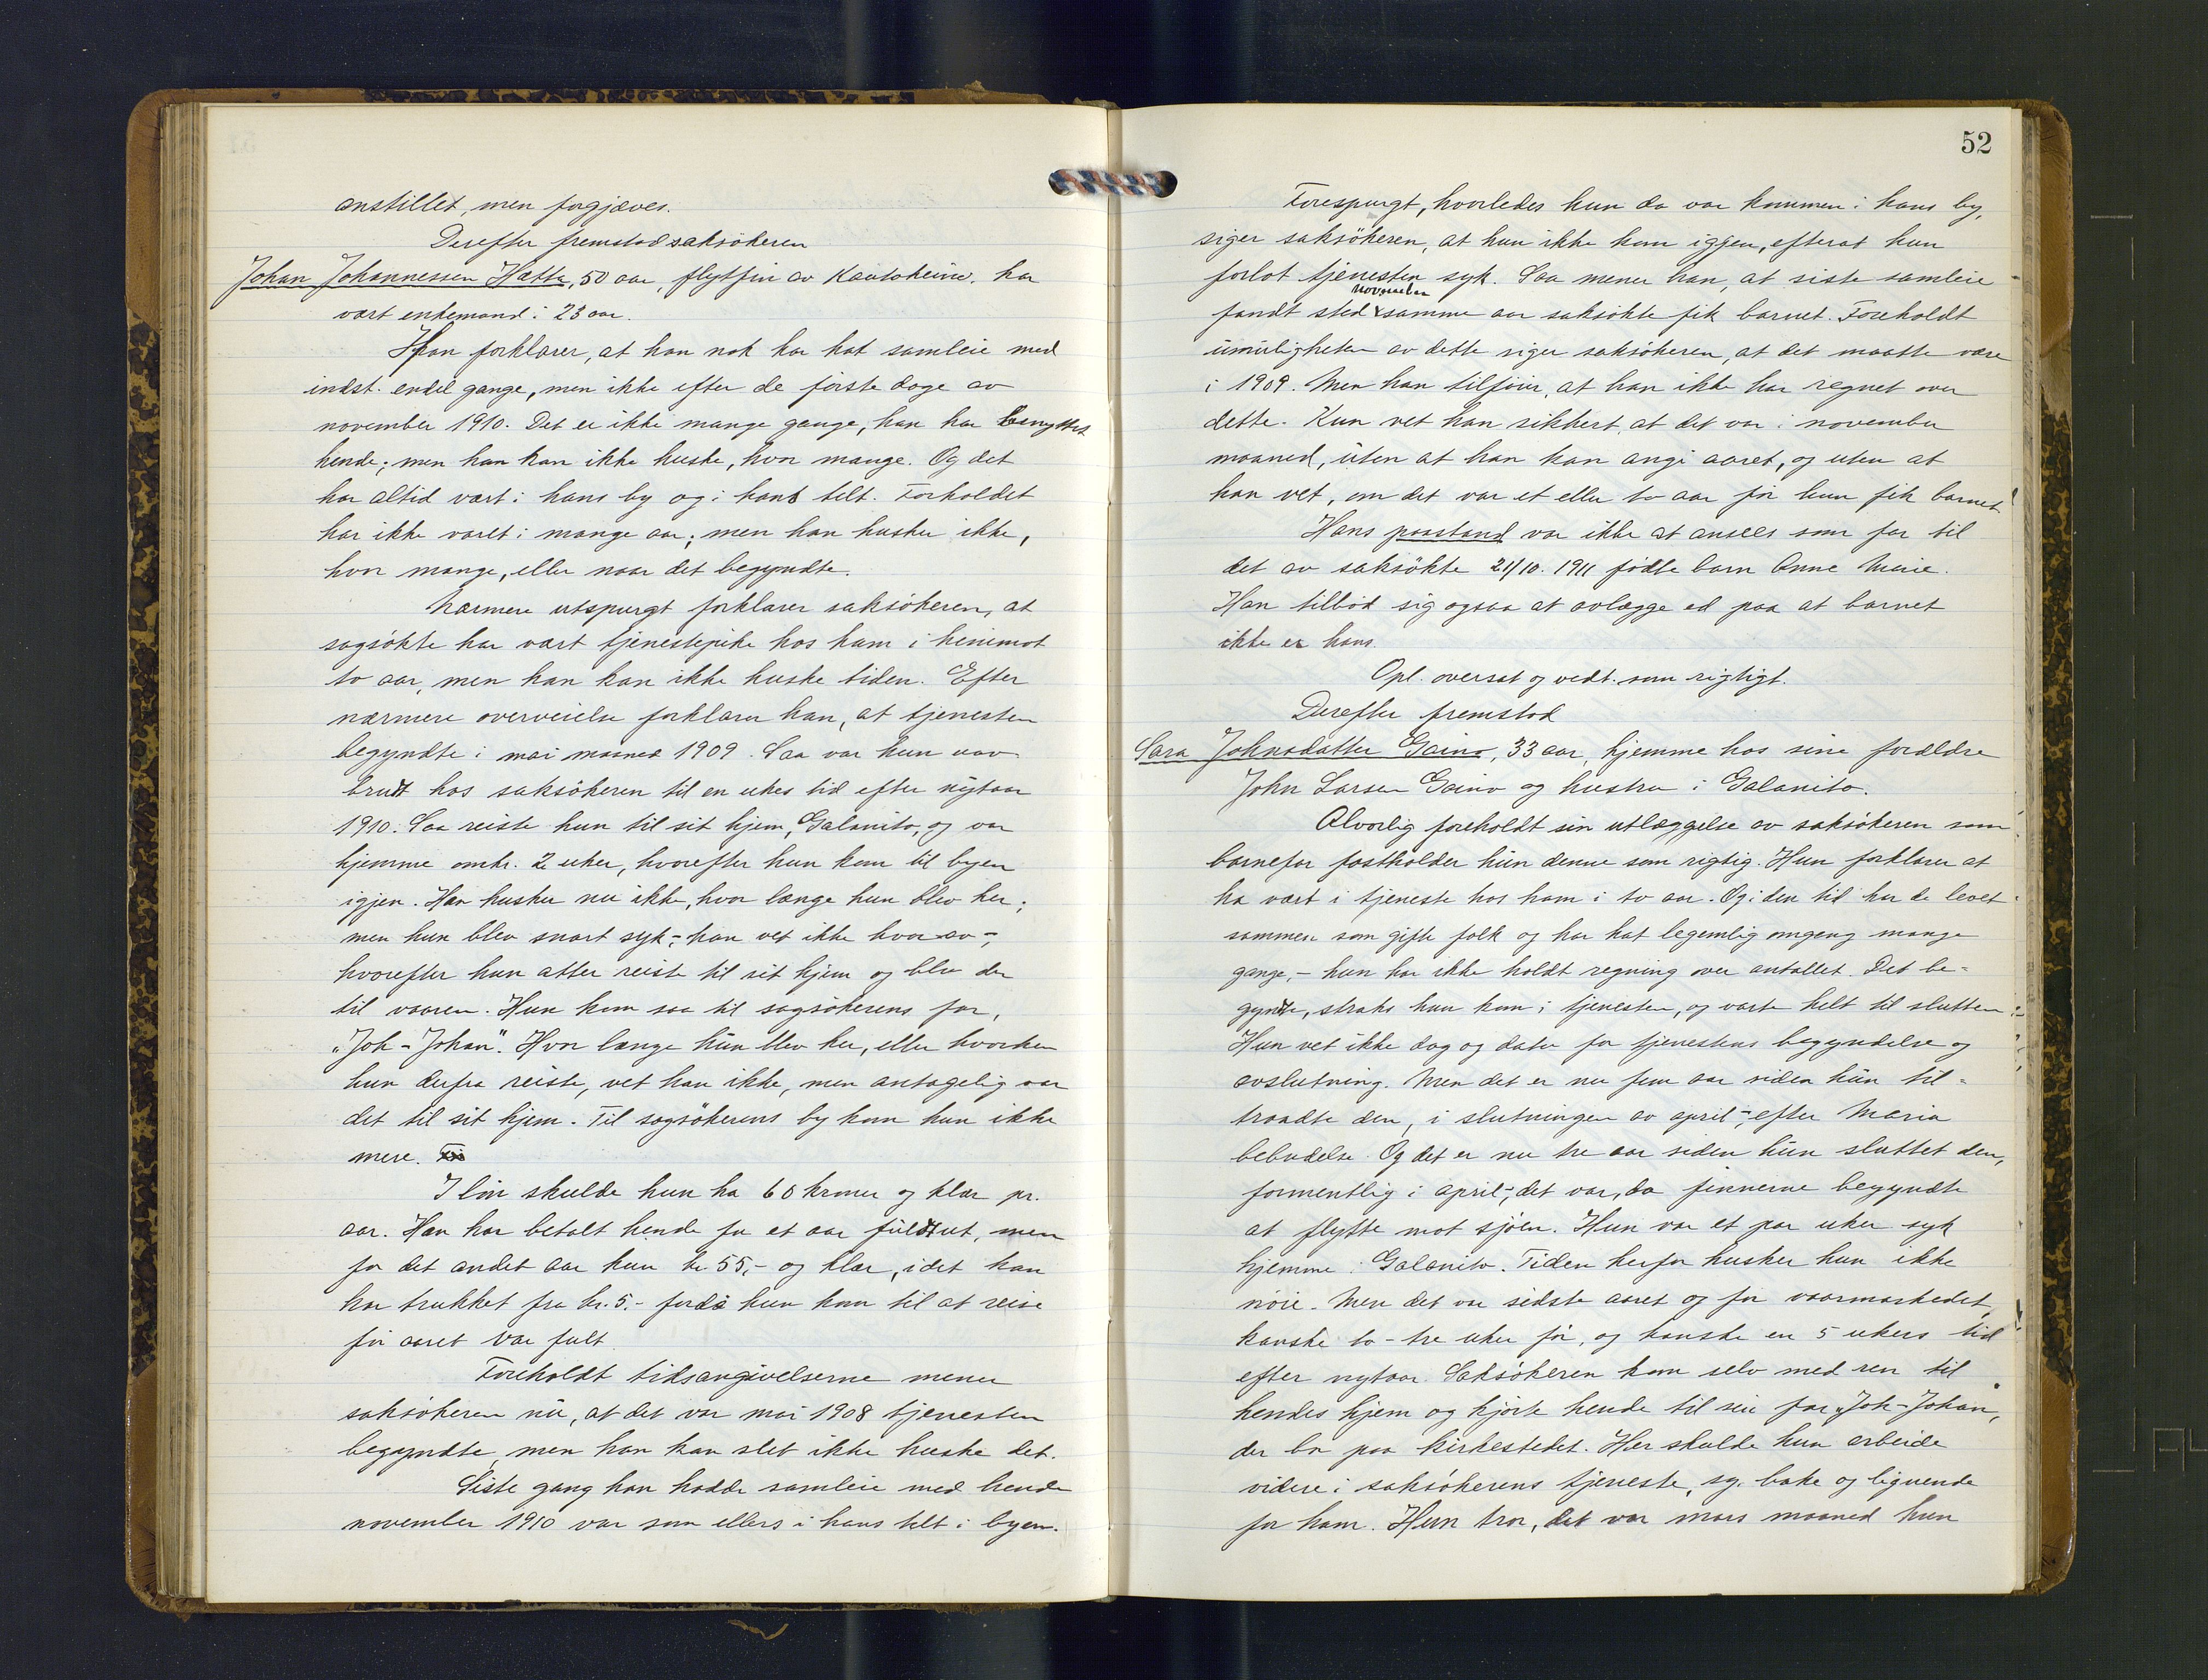 anstillet, men forgjæves.
Derefter fremstod saksökeren
Johan Johannessen Hætta, 50 aar, flytfin av Kautokeino. har
vært enkemand i 23 aar.
Han forklarer, at han nok har hat samleie med
indst. endel gange, men ikke efter de første dage av
november 1910. Det er ikke mange gange, han har benyttet
hende; men han kan ikke huske, hvor mange. Og det
har altid vært i hans by og i hans telt. Forholdet
har ikke varet i mange aar; men han husker ikke,
hvor mange, eller naar det begyndte.
Nærmere utspurgt forklarer saksökeren, at
sagsökte har vært tjenestepike hos ham i henimot
to aar, men han kan ikke huske tiden. Efter
nærmere overveielse forklarer han, at tjenesten
begyndte i mai maaned 1909. Saa var hun uav
brudt hos saksökeren til en ukes tid efter nytaar
1910. Saa reiste hun til sit hjem, Galanito, og var
hjemme omkr. 2 uker, hvorefter hun kom til byen
igjen. Han husker nu ikke, hvor længe hun blev her;
men hun blev snart syk, - han vet ikke hvorav -,
hvorefter hun atter reiste til sit hjem og blev der
til vaaren. Hun kom saa til sagsökerens far,
"Joh-Johan". Hvor længe hun blev her, eller hvorhen
hun derfra reiste, vet han ikke, men antagelig var
det til sit hjem. Til sagsökerens by kom hun ikke
mere.
I lön skulde hun ha 60 kroner og klær pr.
aar. Han har betalt hende for et aar fuldt ut, men
for det andet aar kun kr 55,- og klær, idet han
har trukket fra kr. 5.- fordi hun kom til at reise
før aaret var fult.
Foreholdt tidsangivelserne mener
saksökeren nu, at det var mai 1908 tjenesten
begyndte, men han kan slet ikke huske det.
Siste gang han hadde samleie med hende
november 1910 var som ellers i hans telt i byen.
52
Forespurgt, hvorledes hun da var kommen i hans by,
siger saksökeren, at hun ikke kom igjen, efterat hun
forlot tjenesten syk. Saa mener han, at siste samleie
november
fandt sted samme aar saksökte fik barnet. Foreholdt
umuligheten av dette siger saksökeren, at det maatte være
i 1909. Men han tilföier, at han ikke har regnet over
dette. Kun vet han sikkert, at det var i november
maaned, uten at han kan angi aaret, og uten at
han vet, om det var et eller to aar før hun fik barnet.
Hans paastand var ikke at ansees som far til
det av saksökte 21/10. 1911 fødte barn Anne Marie.
Han tilbød sig ogsaa at avlægge ed paa at barnet
ikke er hans.
Opl. oversat og vedt. som rigtigt.
Derefter fremstod
Sara Johnsdatter Gaino, 33 aar, hjemme hos sine forældre
John Larsen Gaino og hustru i Galanito.
Alvorlig foreholdt sin utlæggelse av saksökeren som
barnefar fastholder hun denne som rigtig. Hun forklarer at
ha vært i tjeneste hos ham i to aar. Og i den tid har de levet
sammen som gifte folk og har hat legemlig omgang mange
gange, - hun har ikke holdt regning over antallet. Det be-
gyndte, straks hun kom i tjenesten, og varte helt til slutten.
Hun vet ikke dag og dato for tjenestens begyndelse og
avslutning. Men det er nu fem aar siden hun til-
traadte den, i slutningen av april -, efter Maria
bebudelse. Og det er nu tre aar siden hun sluttet den,
formentlig i april -, det var, da finnerne begyndte
at flytte mot sjøen. Hun var et par uker syk
hjemme i Galanito. Tiden herfor husker hun ikke
nöie. Men det var sidste aaret og før vaarmarkedet,
kanske to - tre uker før, og kanske en 5 ukers tid
efter nytaar. Saksökeren kom selv med ren til
hendes hjem og kjørte hende til sin far "Joh-Johan",
der bor paa kirkestedet. Her skulde hun arbeide
videre i saksökerens tjeneste, sy, bake og lignende
for ham. Hun tror, det var mars maaned hun